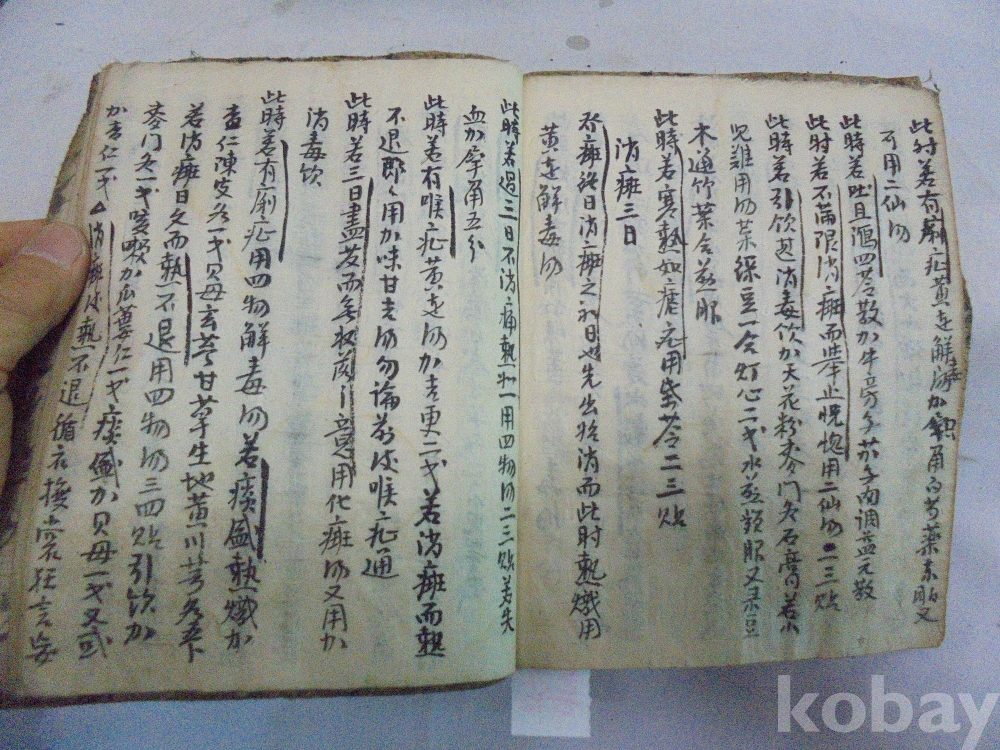 此時若有痢疾黃連解毒湯加犀角白芍藥
可用二仙湯
此時若吐且瀉四苓散加牛旁子茶子內調益元散
此時若不滿限消癍而擧止恍惚用二仙湯二三貼
此時若引飮甚消毒飮加天花粉麥門冬石膏若小
兒難用湯菜綠豆一合灯心二戔水煎頻服又菉豆
木通竹葉合煎服
此時若寒熱如瘧疾用柴苓二三貼
消癍三日
發癍後日消癍之初日也先出然消而此時熱熾用
黃連解毒湯
此時若過三日不消痛熱 一用四物湯二三貼若失
血加犀角五分
此時若有喉疾黃連湯加吉更二戔若消癍而熱
不退卽用加味甘吉湯勿論前後喉疾通
此時若三日盡發而 用化癍湯又用加
消毒飮
此時若有痢疾用四物解毒湯若痰盛熱熾加
杏仁陳皮各一戔貝母玄參甘草生地黃川芎各五卜
若消癍日久而熱不退用四物湯三四貼引飮加
麥門冬一戔咳嗽加瓜蔞仁一戔痰盛加貝母一戔又或
加杏仁一戔 消癍後熱不退循衣撫裳狂言妄